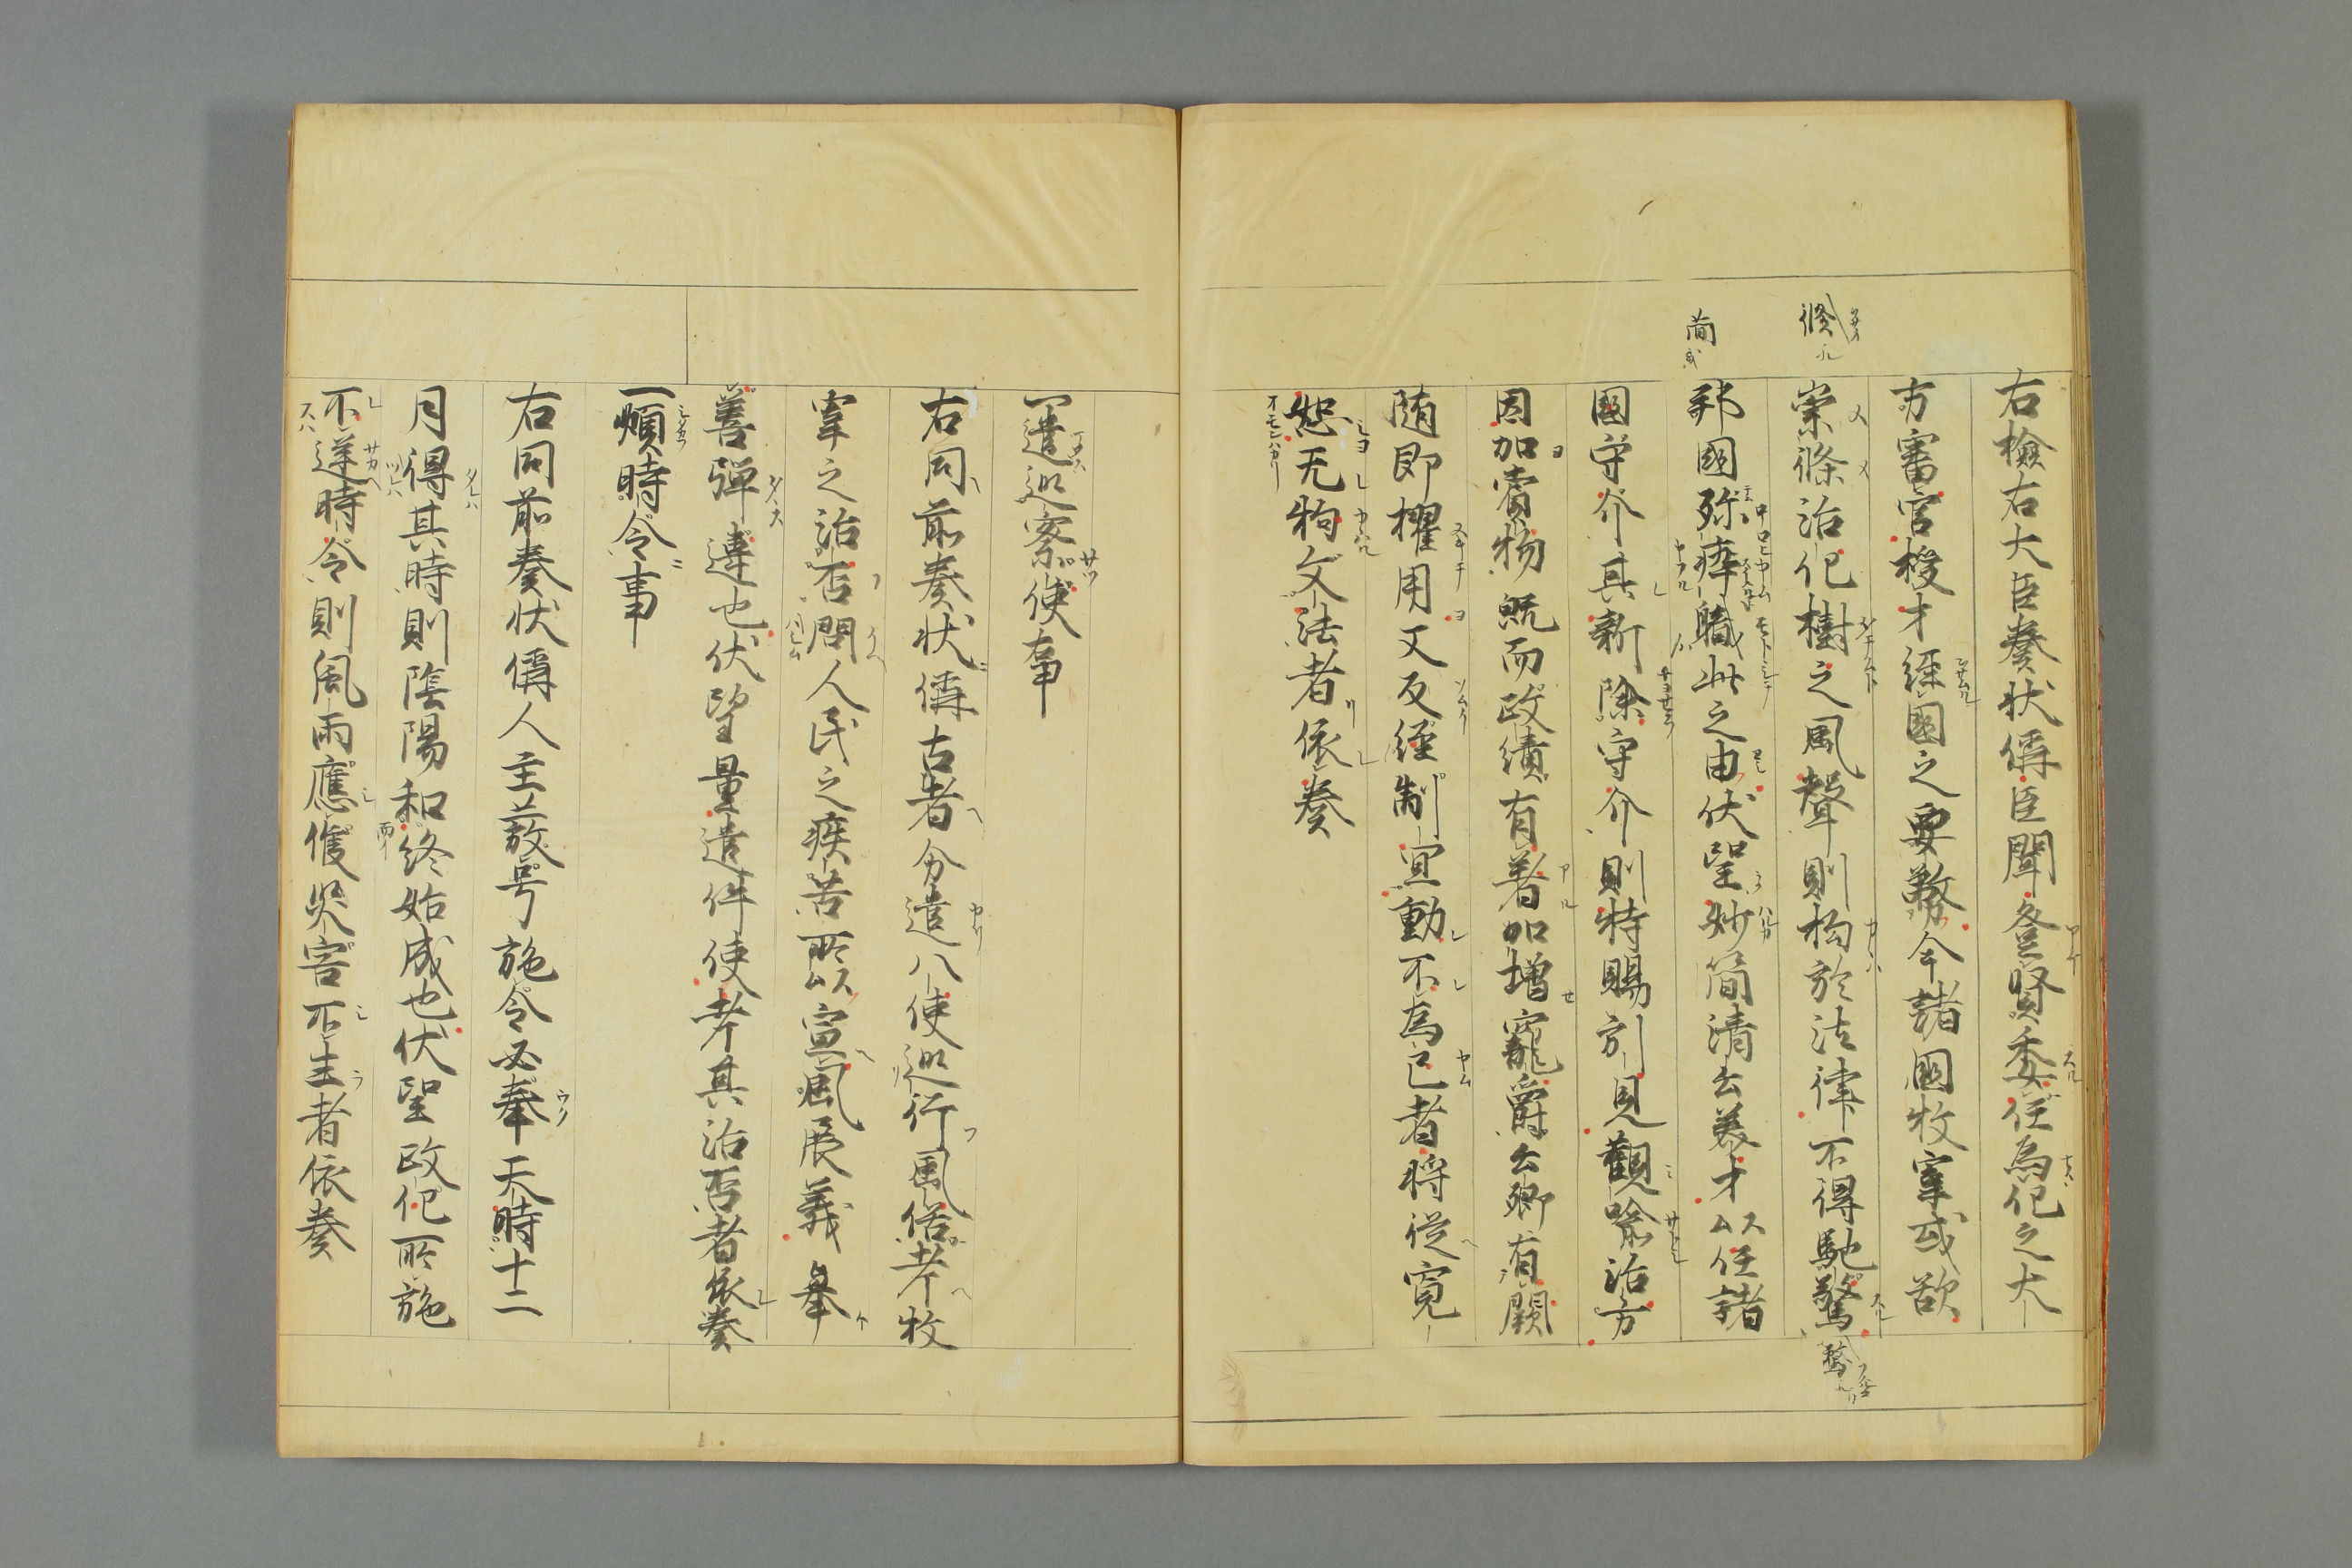 右檢右大臣奏状偁臣聞登賢委任為化之大
方審官授才經國之要務今諸國牧宰或欲
崇修治化樹之風聲則拘於法律不得馳騖
邦國殄瘁職此之由伏望妙簡清公美才以任諸
國守介其新除守介則特賜引見觀喩治方
因加賞物既而政績有著加増寵爵公卿有闕
随即擢用又反經制宜動不為己者將從寛
恕无拘文法者依奏
一遣巡察使事
右同前奏状偁古者分遣八使巡行風俗考牧
宰之治否問人民之疾苦所以宣風展義舉
善弾違也伏望量遣件使考其治否者依奏
一順時令事
右同前奏状偁人主發号施令必奉天時十二
月得其時則陰陽和終始成也伏望政化所施
不逆時令則風雨應侯災害不生者依奏